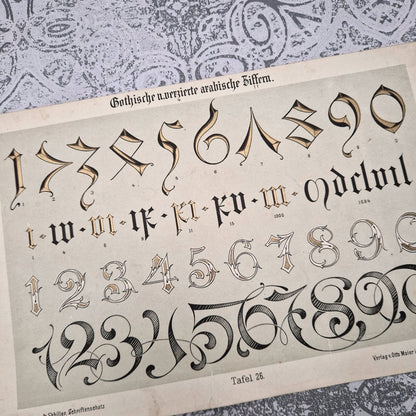 Gothische u. verzierte arabische Ziffern.
1 2 3 4 5 6 7 8 9 0
I · IV · VI · IX · XI · XV · M · MDCLVII
1 4 6 9 11 15 1000
1 2 3 4 5 6 7 8 9
1 2 3 4 5 6 7 8 9 0
Schriftenschatz
Tafel 26.
Verlag v. Otto Maier